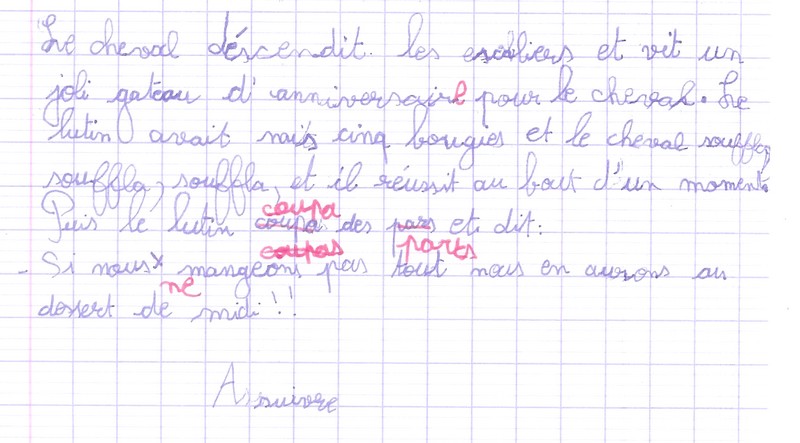 Le cheval déscendit. les escaliers et vit un
joli gateau d'anniversaire pour le cheval. Le
lutin avait mais cinq bougies et le cheval souffla,
souffla, souffla, et il réussit au bout d'un moment.
coupa
Puis le lutin coupa des pars et dit:
coupas parts
- Si nous x mangeons pas tout nous en aurons au
ne
dessert de midi!!
A suivre